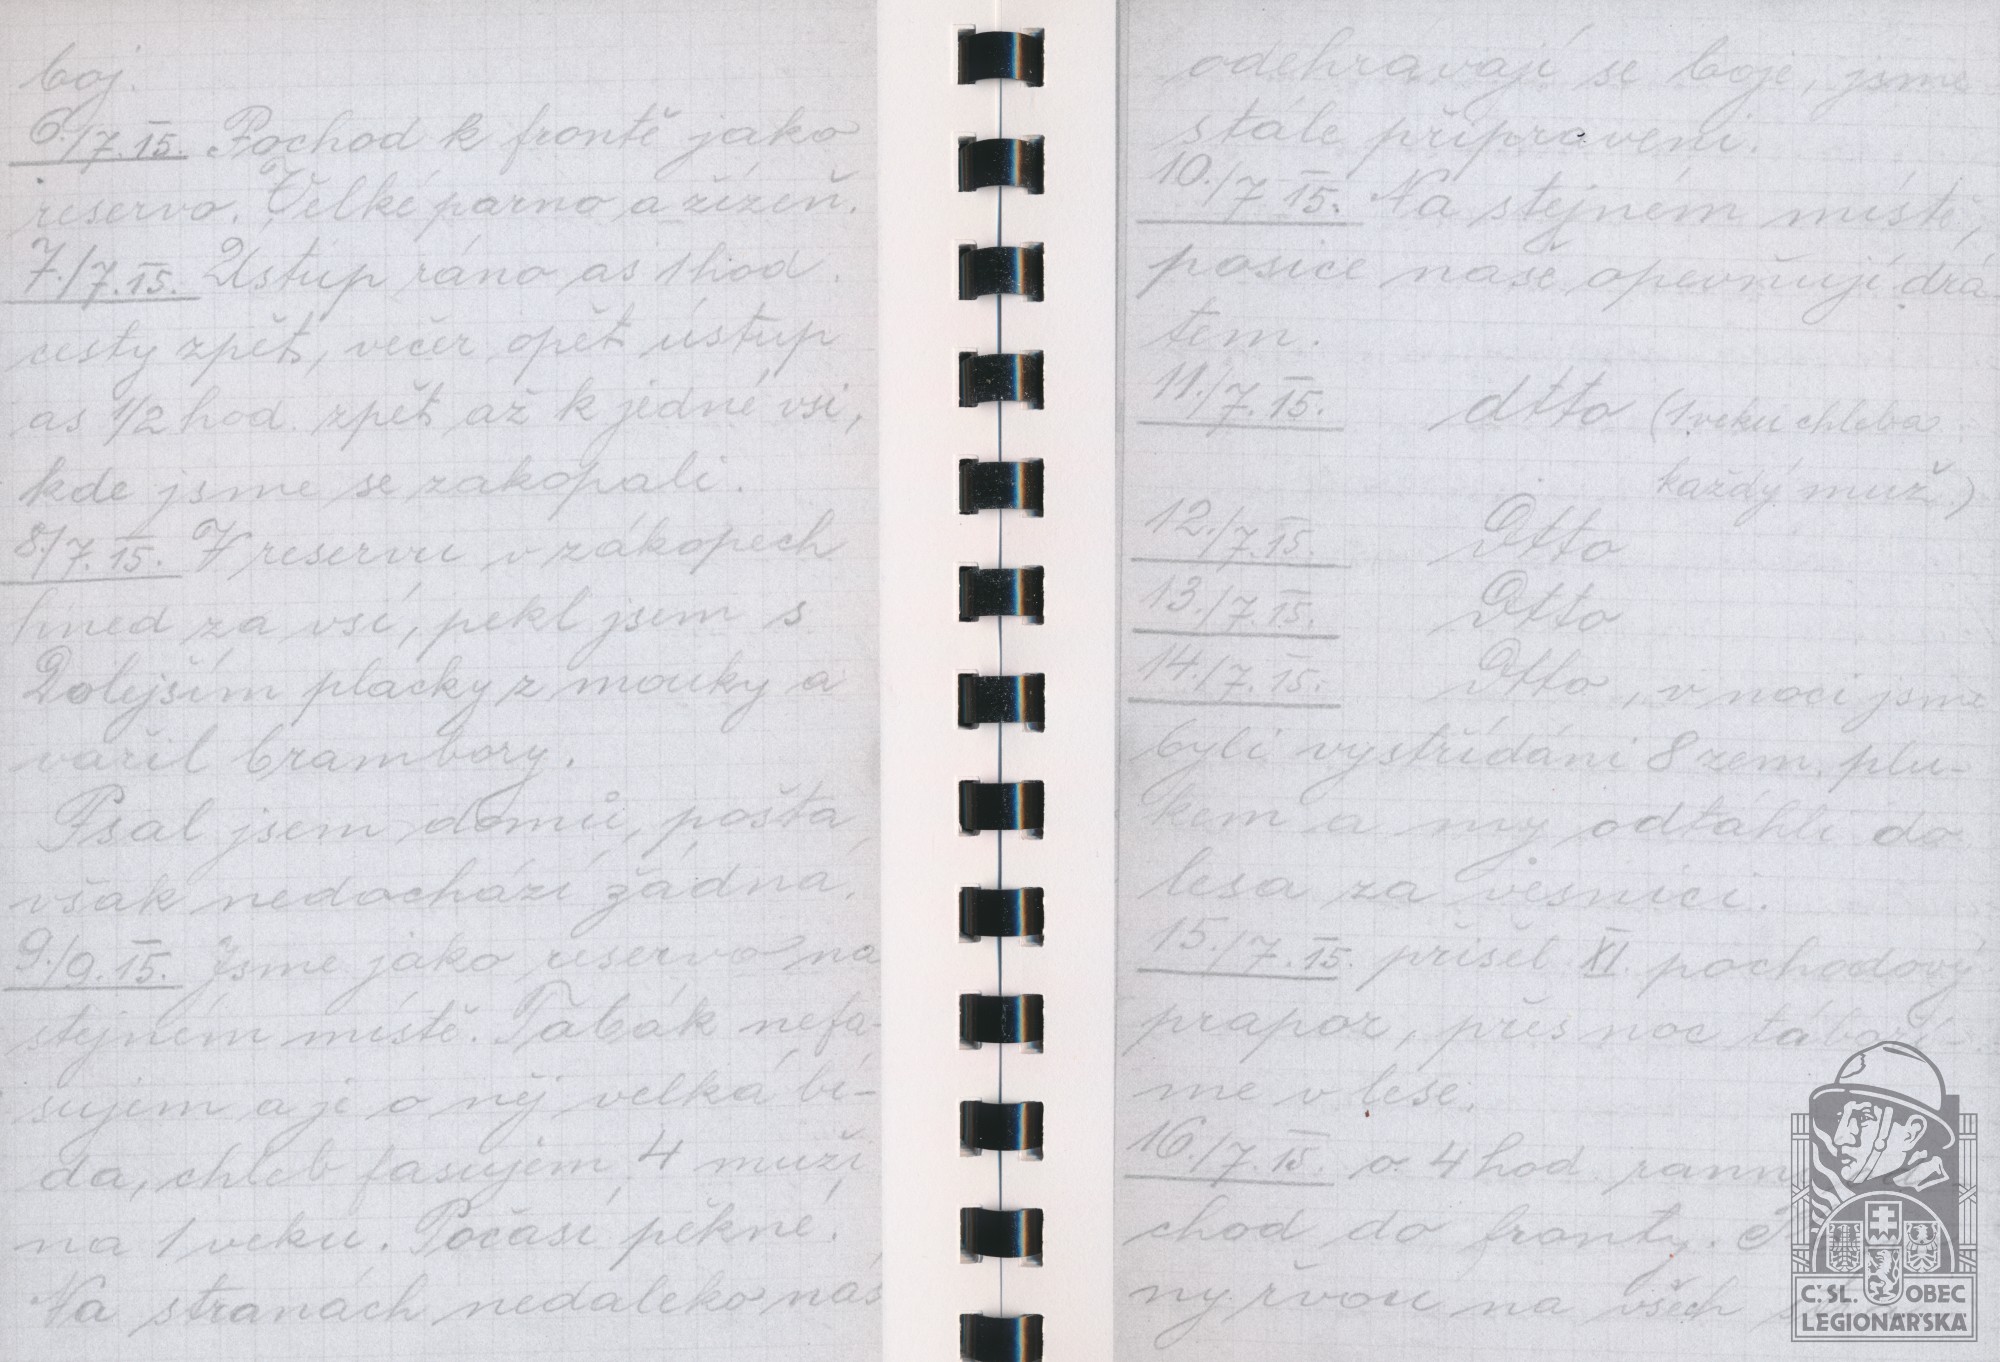 boj.
6./7. 15. Pochod k frontě jako
reservo. Velké parno a žízeň.
7./7. 15. Ústup ráno as 1 hod.
cesty zpět, večer opět ústup
as 1/2 hod. zpět až k jedné vsi,
kde jsme se zakopali.
8./7. 15. V reservu v zákopech
hned za vsí, pekl jsem s
Dolejším placky z mouky a
vařil brambory.
Psal jsem domů, pošta
však nedochází žádná.
9./9. 15. Jsme jako reservo na
stejném místě. Tabák nefa-
sujem a je o něj velká bí-
da, chleb fasujem 4 muži
na 1 veku. Počasí pěkné.
Na stranách nedaleko nás
odehravají se boje, jsme
stále připraveni.
10./7 15. Na stejném místě,
posice naše opevňují drá
tem.
11./7. 15. dtto (1 veku chleba
každý muž)
12./7. 15. Dtto
13./7. 15. Dtto
14./7. 15. Dtto, v noci jsme
byli vystřídáni 8 zem. plu-
kem a my odtáhli do
lesa za vesnici.
15./7. 15. přišel XI. pochodový
prapor, přes noc táboří-
me v lese.
16./7. 15. o 4 hod. ranní
chod do fronty.
ny řvou na všech
Č.SL. OBEC
LEGIONÁŘSKÁ